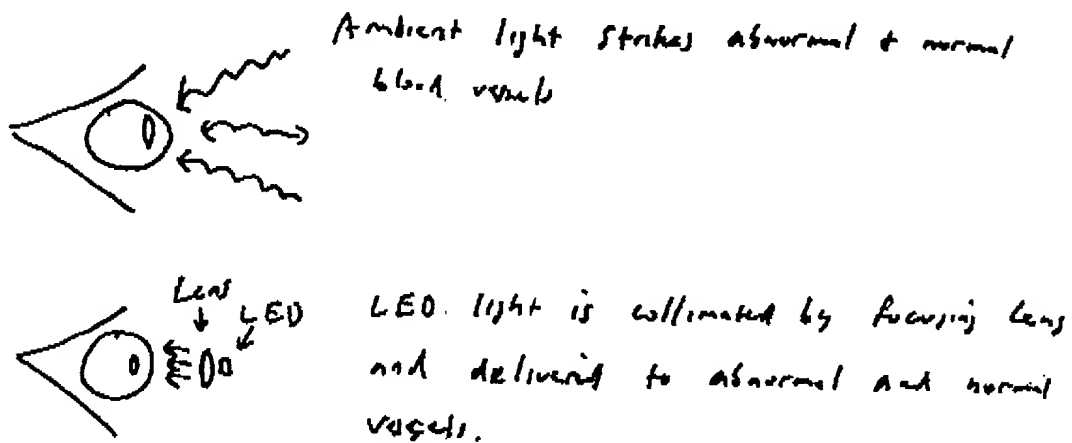 Ambient light strikes abnormal & normal
blood vessels
Lens
LED
LED light is collimated by focusing lens
and delivered to abnormal and normal
vessels.